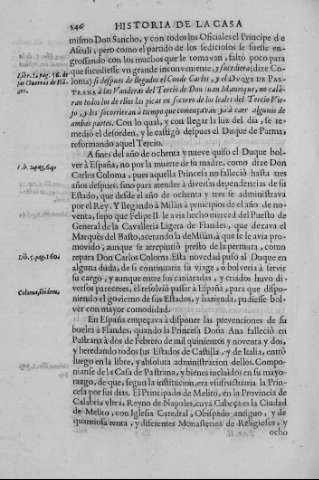 546 HISTORIA DE LA CASA
mismo Don Sancho, y con todos los Oficiales el Principe de
Asculi, pero como el partido de los sediciosos se fuesse en-
grossando con los muchos que le tomavan, faltò poco para
que sucediesse vn grande inconveniente, y sucediera, (dize Co-
loma) si despues de llegados el Conde Carlos, y el DVQVE DE PAS-
TRANA à las Vanderas del Tercio de Don Iuan Manrique, no cala-
ran todos de ellas las picas en socorro de los leales del Tercio Vie-
jo, y los socorrieran à tiempo que començavan yà à caer algunos de
ambas partes. Con lo qual, y con llegar la luz del dia, se re-
mediò el desorden, y le castigò despues el Duque de Parma,
reformando aquel Tercio.
A fines del año de ochenta y nueve quiso el Duque bol-
ver à España, no por la muerte de su madre, como dize Don
Carlos Coloma, pues aquella Princesa no falleciò hasta tres
años despues; sino para atender à diversas dependencias de su
Estado, que desde el año de ochenta y tres se administrava
por el Rey. Y llegando à Milàn à principios del año de no-
venta, supo que Felipe II. le avia hecho merced del Puesto de
General de la Cavalleria Ligera de Flandes, que dexava el
Marquès del Basto, acetando la de Milàn, à que le avia pro-
movido; aunque se arrepintiò presto de la permuta, como
repara Don Carlos Coloma. Esta novedad puso al Duque en
alguna duda, de si continuaria su viage, ò bolveria à servir
su cargo, y aunque entre sus camaradas, y criados huvo di-
versos pareceres, èl resolviò passar à España, para que dispo-
niendo el govierno de sus Estados, y hazienda, pudiesse bol-
ver con mayor comodidad.
En España empeçava à disponer las prevenciones de su
buelta à Flandes, quando la Princesa Doña Ana falleciò en
Pastrana à dos de Febrero de mil quinientos y noventa y dos,
y heredando todos sus Estados de Castilla, y de Italia, entrò
luego en la libre, y absoluta administracion dellos. Compo-
nianse de la Casa de Pastrana, y bienes incluidos en su mayo-
razgo, de que, segun la institucion, era vsufructuaria la Prin-
cesa por sus dias. El Principado de Melito, en la Provincia de
Calabria vltra, Reyno de Napoles, cuya Cabeça es la Ciudad
de Melito, con Iglesia Catedral, Obispado antiguo, y de
quantiosa renta, y diferentes Monasterios de Religiosos, y
ocho
Lib. 2. pag. 56. de
Lib. 5. pag. 160.
Coloma, ibidem.